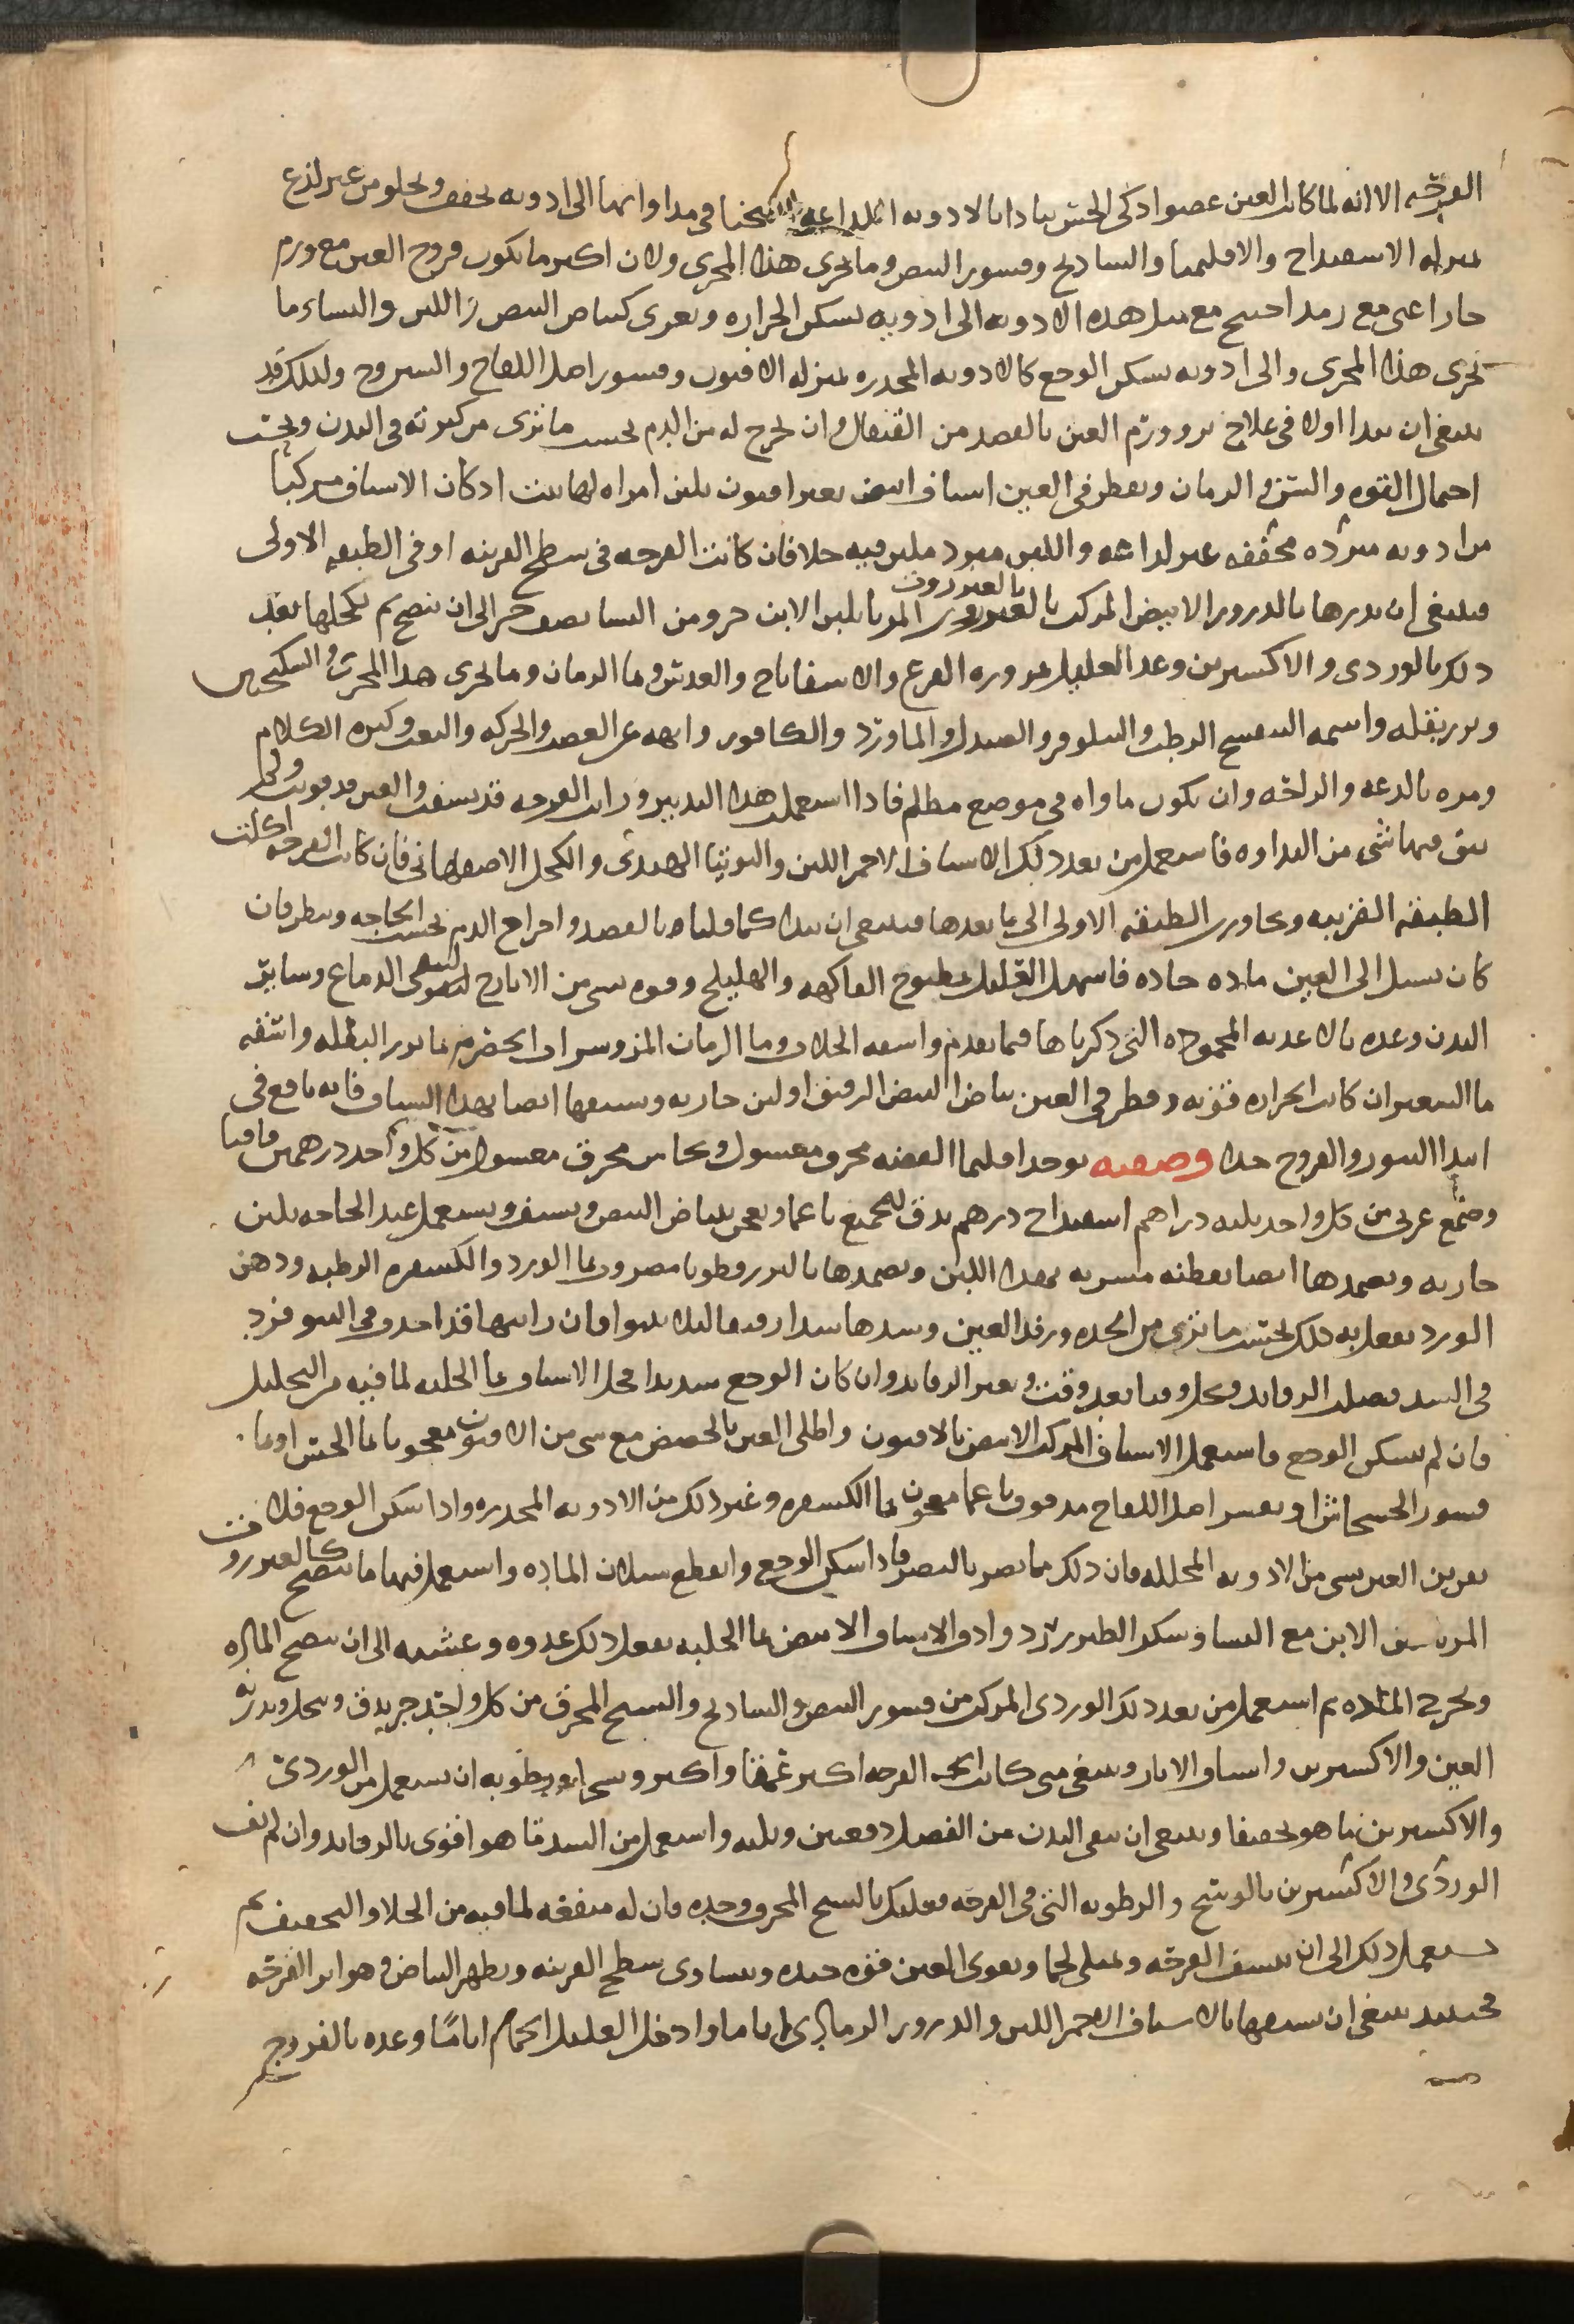 القرحه الا انه لما كانت العين عضوا ذكى الحس يتاذا بالادويه اللذاعه احتجنا فى مداواتها الى ادويه تجفف وتجلو من غير لذع
بمنزله الاسفيداج والاقليميا والسادنج وقشور البيض وما يجرى هذا المجرى ولان اكثر ما تكون قروح العين مع ورم
حار اعنى مع رمد احتيج مع مثل هذه الادويه الى ادويه تسكن الحراره وتغرى كبياض البيض واللبن والنشاء وما
يجرى هذا المجرى والى ادويه تسكن الوجع كالادويه المخدره بمنزله الافيون وقشور اصل اللفاح واليبروح ولذلك قد
ينبغى ان يبدا اولا فى علاج قروح العين بالفصد من القيفال وان يخرج له من الدم بحسب ما ترى من كثرته فى البدن وبحسب
احتمال القوه والسن والزمان ويقطر فى العين اشياف ابيض بغير افيون بلبن امراه لها بنت اذ كان الاشياف مركبا
من ادويه مبرده مجففه غير لذاعه واللبن مبرد ملين فيه جلا فان كانت القرحه فى سطح القرنيه او فى الطبقه الاولى
فينبغى ان تذرها بالذرور الابيض المركب بالعنزروت المربا بلبن الاتن جزو من النشا نصف جزو الى ان تنضج ثم تكحلها بعد
ذلك بالوردى والاكسيرين وغذ العليل بمزوره القرع والاسفاناخ والعدس وما الرمان وما يجرى هذا المجرى والسكنجبين
وبزر بقله واشمه البنفسج الرطب والنيلوفر والصندل والماورد والكافور وانهه عن الغضب والحركه والتعب وكثره الكلام
ومره بالدعه والراحه وان يكون ماواه فى موضع مظلم فاذا استعملت هذا التدبير ورايت القرحه قد نشفت والعين قد قويت ولم
يبق فيها شى من النداوه فاستعمل من بعد ذلك الاشياف الاحمر اللين والتوتيا الهندى والكحل الاصفهانى فان كانت القرحه اكلت
الطبقه القرنيه وتجاوزت الطبقه الاولى الى ما بعدها فينبغى ان تبدا كما قلنا بالفصد واخراج الدم بحسب الحاجه وتنظر فان
كان تسيل الى العين ماده حاده فاسهل العليل بمطبوخ الفاكهه والهليلج وقوه بشى من الايارج لتنقى الدماغ وسائر
البدن وغذه بالاغذيه المحموده التى ذكرناها فيما تقدم واسقه الجلاب وما الرمان المز وشراب الحصرم بما بزر البقله واسقه
ما الشعير ان كانت الحراره قويه وقطر فى العين بياض البيض الرقيق او لبن جاريه وتتبعها ايضا بهذا الشياف فانه نافع فى
ابتدا البثور والقروح جدا وصفته يوخذ اقليميا الفضه محرق مغسول ونحاس محرق مغسول من كل واحد درهمين قاقيا
وصمغ عربى من كل واحد ثلثه دراهم اسفيداج درهم يدق الجميع ناعما ويعجن ببياض البيض ويشيف ويستعمل عند الحاجه بلبن
جاريه وتضمدها ايضا بقطنه مشربه بهذا اللبن وتضمدها بالبزرقطونا مضروب بما الورد والكسفره الرطبه ودهن
الورد تفعل به ذلك بحسب ما ترى من الحده ورفد العين وشدها شدا رفيقا ليلا تنتوا فان رايتها قد اخذت فى النتو فزد
فى الشد فضل الرفايد وتحل وقتا بعد وقت وتغير الرفايد وان كان الوجع شديدا فحل الاشياف بما الحلبه لما فيه من التحليل
فان لم يسكن الوجع فاستعمل الاشياف المركب الابيض بالافيون واطلى العين بالحضض مع شى من الافيون معجونا بما الخس او بما
قشور الخشخاش او بقشر اصل اللفاح مدقوق ناعما معجون بما الكسفره وغير ذلك من الادويه المخدره واذا سكن الوجع فلا
تقربن العين بشى من الادويه المحلله فان ذلك مما يضر بالبصر فاذا سكن الوجع وانقطع سيلان الماده واستعمل فيها ما ينضج كالعنزروت
المربا بلبن الاتن مع النشا وسكر الطبرزد وادف الاشياف الابيض بما الحلبه تفعل ذلك غدوه وعشيه الى ان تنضج الماده
وتخرج المده ثم استعمل من بعد ذلك الوردى المركب من قشور البيض والسادنج والشيح المحرق من كل واحد جزو يدق وينخل ويذر به
العين والاكسيرين واشياف الابار وينبغى متى كانت القرحه اكثر عمقا واكثر وسخا ورطوبه ان يستعمل من الوردى
والاكسيرين ما هو تجفيفا وينبغى ان ينقى البدن من الفضل دفعتين وثلثه واستعمل من الشد ما هو اقوى بالرفايد وان لم يف
الوردى والاكسيرين بالوسخ والرطوبه التى فى القرحه فعليك بالشيح المحرق وحده فان له منفعه لما فيه من الجلا والتجفيف ثم
تستعمل ذلك الى ان تنشف القرحه وتمتلى لحما وتقوى العين قوه جيده وتساوى سطح القرنيه ويظهر البياض وهو اثر القرحه
فحينئذ ينبغى ان تتبعها بالاشياف الاحمر اللين والذرور الرمادى اياما وادخل العليل الحمام اياما وغذه بالفروج